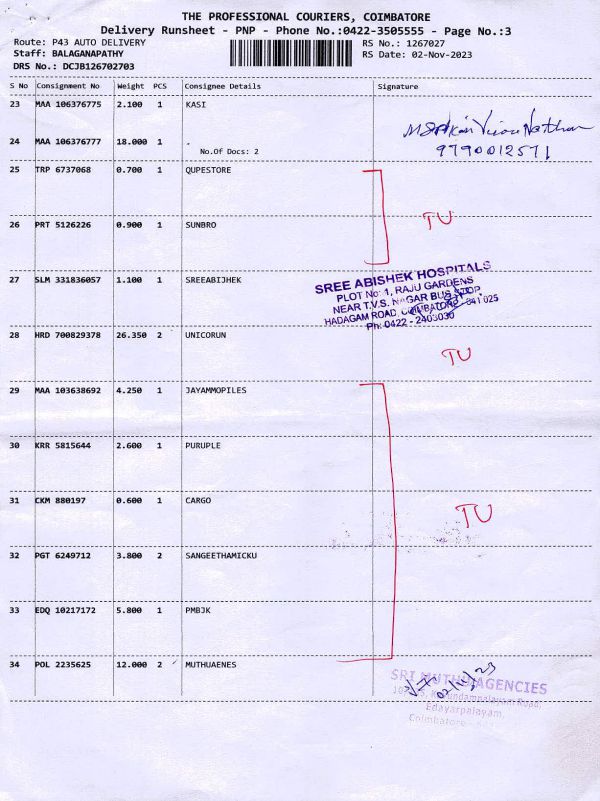 THE PROFESSIONAL COURIERS, COIMBATORE
Delivery Runsheet - PNP - Phone No.:0422-3505555 - Page No.:3
Route: P43 AUTO DELIVERY
RS No.: 1267027
Staff: BALAGANAPATHY
RS Date: 02-Nov-2023
DRS No.: DCJB126702703
S No Consignment No Weight PCS Consignee Details Signature
23 MAA 106376775 2.100 1 KASI
24 MAA 106376777 18.000 1 .
No.Of Docs: 2
9790012571
25 TRP 6737068 0.700 1 QUPESTORE
TU
26 PRT 5126226 0.900 1 SUNBRO
27 SLM 331836057 1.100 1 SREEABIJHEK
SREE ABISHEK HOSPITALS
PLOT No: 1, RAJU GARDENS
NEAR T.V.S. NAGAR BUS STOP
HADAGAM ROAD, COIMBATORE - 641 025
Ph: 0422 - 2403030
28 HRD 700829378 26.350 2 UNICORUN
TU
29 MAA 103638692 4.250 1 JAYAMMOPILES
30 KRR 5815644 2.600 1 PURUPLE
31 CKM 880197 0.600 1 CARGO
TU
32 PGT 6249712 3.800 2 SANGEETHAMICKU
33 EDQ 10217172 5.800 1 PMBJK
34 POL 2235625 12.000 2 MUTHUAENES
SRI MUTHU AGENCIES
Edayarpalayam,
Coimbatore